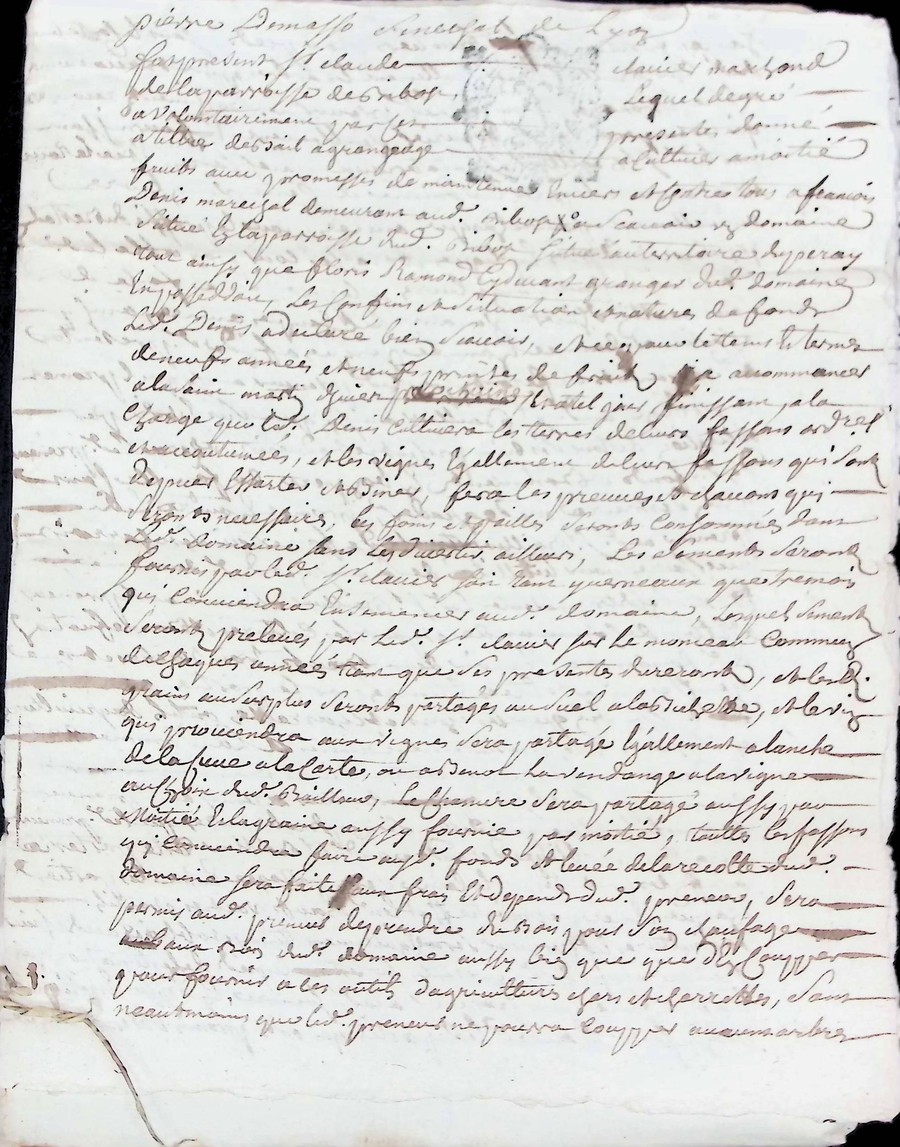 pierre Demasso Senechal de Lyon
fut present Sr. claude clavier marchand
de la parroisse de Ribost, Lequel de gré
a volontairement par ces presentes donné
a tiltre de bail a grangeage a Cultiver a moitié
fruits avec promesses de maintenue Envers et Contre tous a francois
Denis mareschal demeurant aud. Ribost scavoir un domaine
Situé En la parroisse dud. Ribost Situé au territoire du peray
tout ainsy que floris Ramond Cydevant granger dud. domaine
En possedoit, Les Confins et Situation et natures de fonds
Led. Denis a declaré bien Scavoir, et ce pour le tems Et terme
de neufs années et neufs prises de fruits a commancer
a la Saint martin d'hiver Et a tel jour finissant, a la
Charge que led. Denis Cultivera les terres de leurs fassons ord.res
et accoutumées, et les vignes Egallement de leur fassons qui Sont
, fera les preuves et chavons qui
Seront necessaires, les foins et pailles Seront Consommés dans
Led. domaine Sans les divertir ailleurs, Les Sements Seront
fournis par led. Sr. clavier Soit tant que tremois
qu'il Conviendra Ensemencer aud. domaine, Lesquel Sements
Seront prelevés par Led. Sr. clavier Sur le monceau Commun
de chaques année tant que Ses presentes dureront, et les
grains au Surplus Seront partagés au Suel a la Bichette, et le vin
qui proviendra aux vignes Sera partagé Egallement a lanche
de la Cuve a la Carte, ou a Benot La vendange a la vigne
au Choix dud. Bailleur, Le Chanvre Sera partagé aussy par
Moitié Et la graine aussy fournie par moitié, touttes les fassons
qu'il Conviendra faire aud. fonds et levée de la recolte dud.
domaine Sera faite aux frais Et depends dud. preneur, Sera
permis aud. preneur de prendre du Bois pour Son Chaufage
aux Bois dud. domaine aussy bien que que d'En Coupper
pour fournir a les outils d'agriculture chars et charrettes, Sans
neautmoins que led. preneur ne pourra Coupper aucun arbre